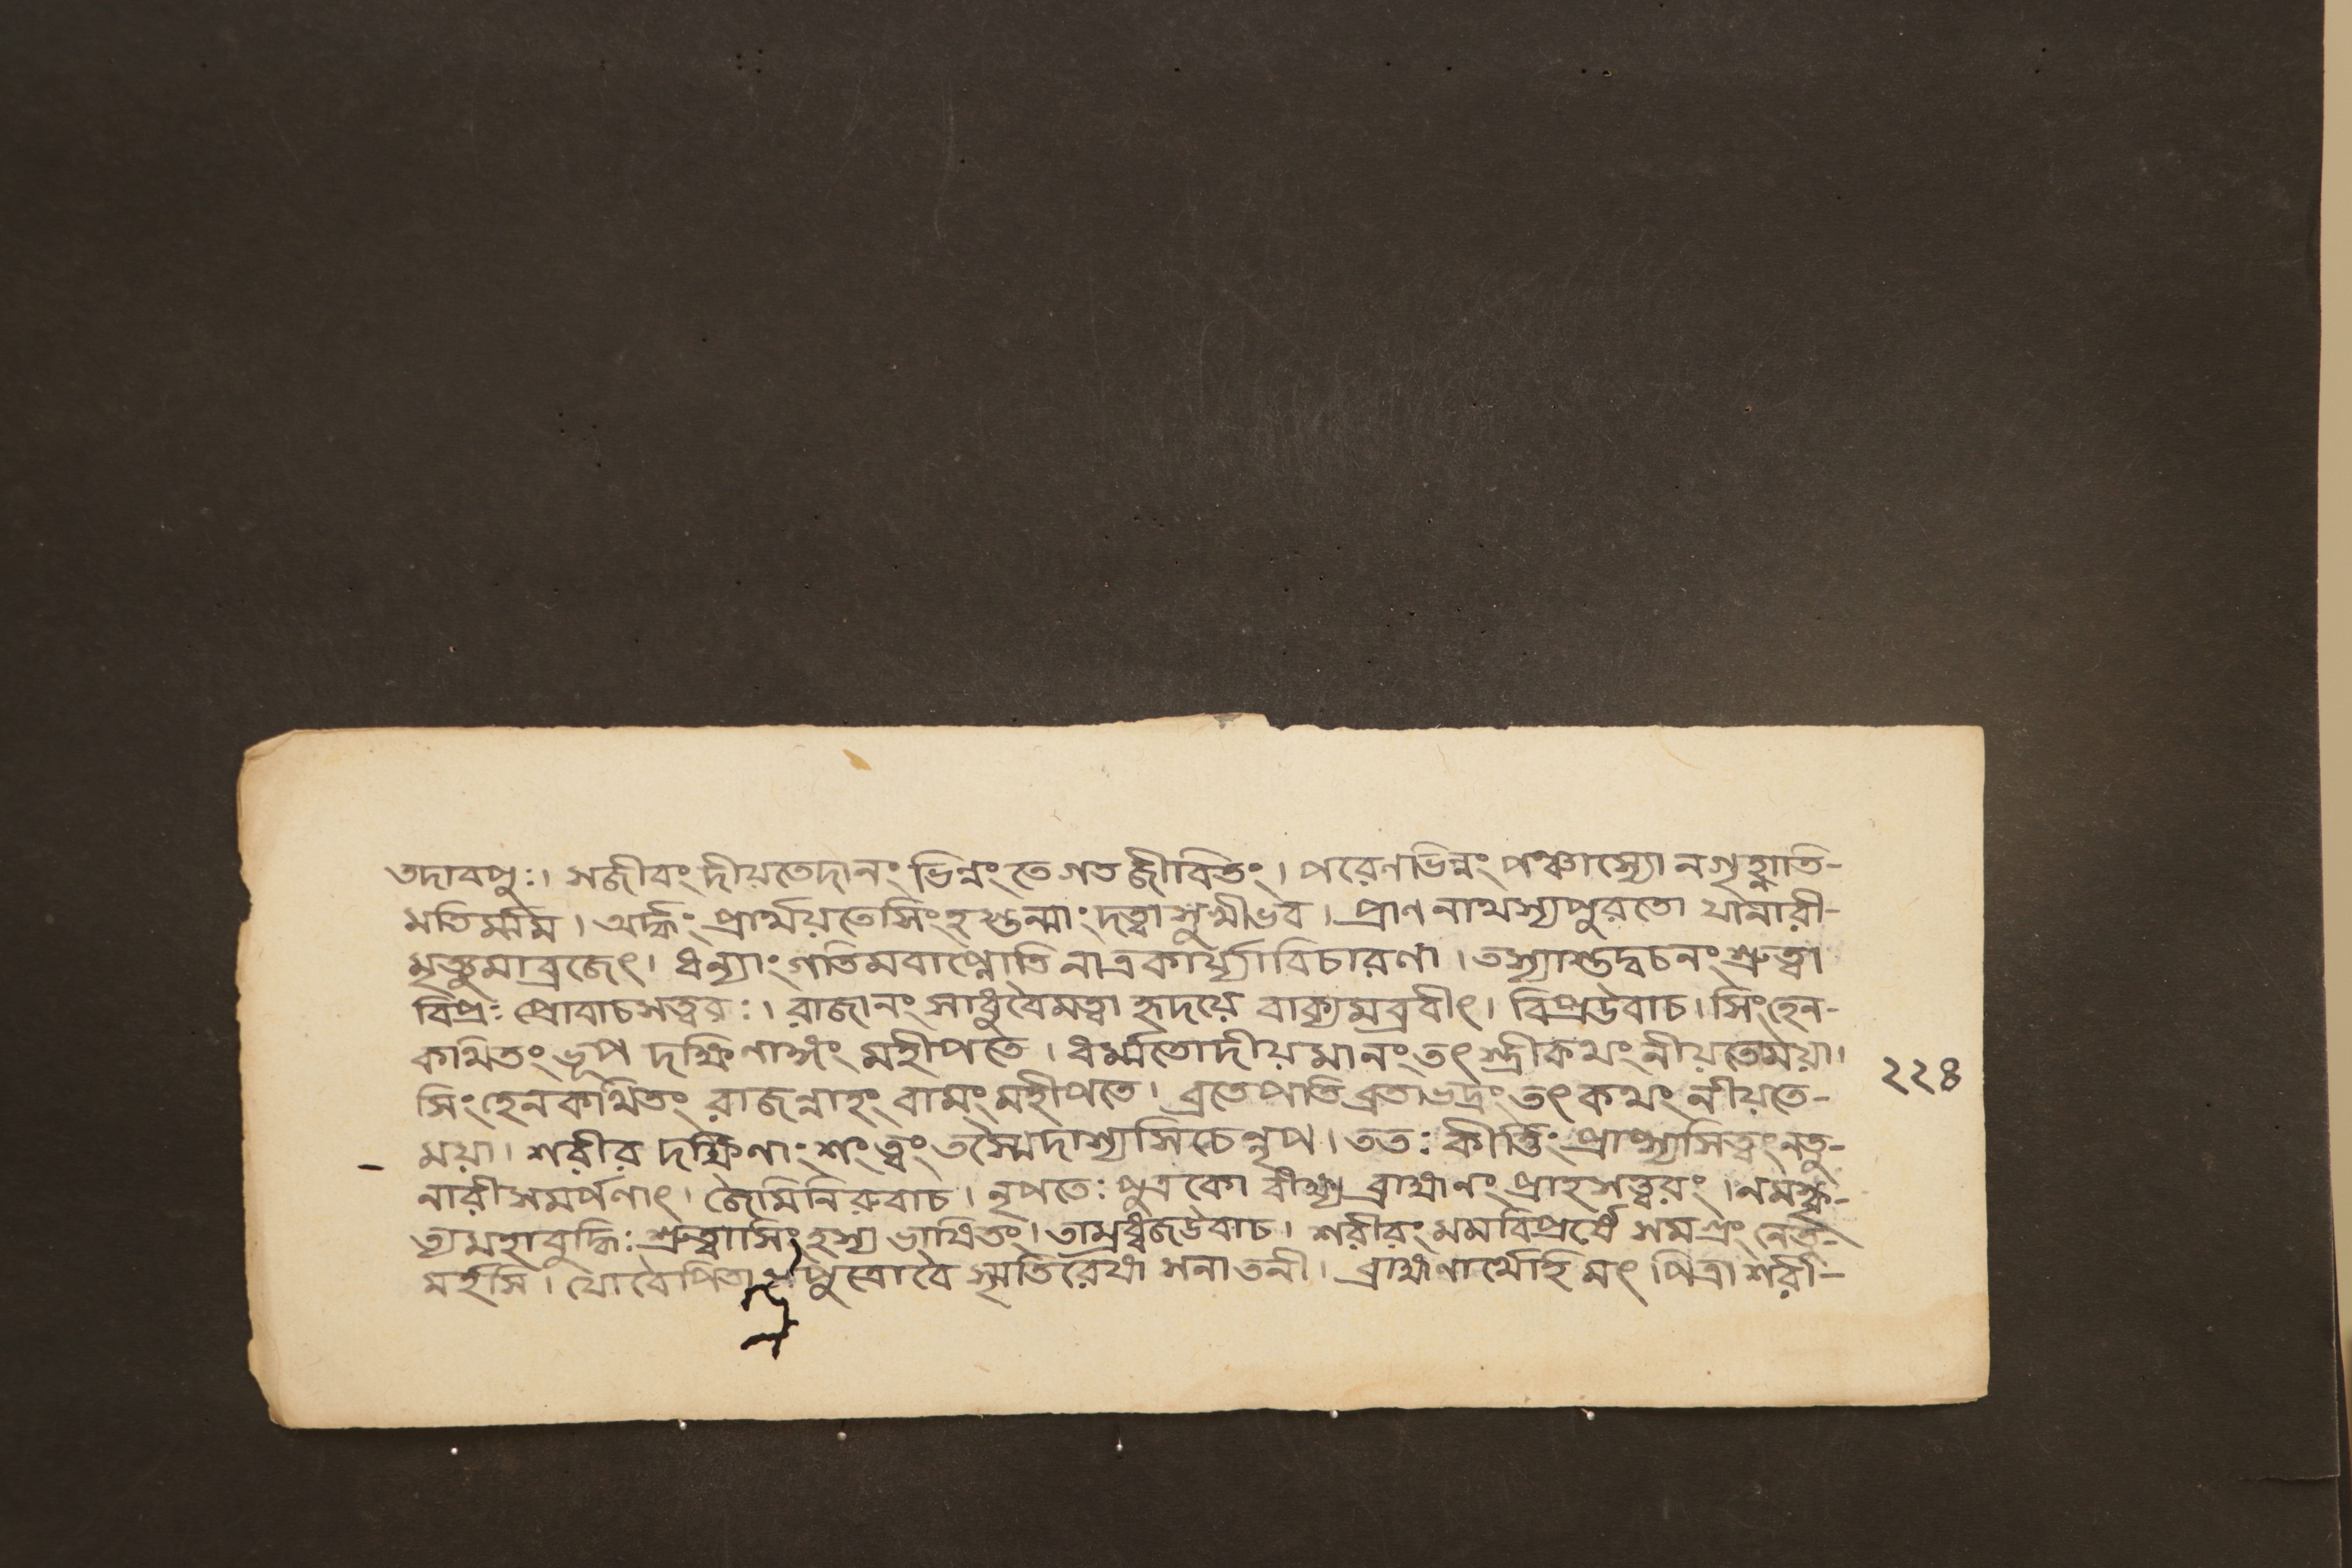 তদাবপুঃ। সজীবং দীয়তেদানং ভিন্নং তে গতজীবিতং। পরেণভিন্নং পঞ্চাস্যো নগৃহ্ণাতি-
মতির্ম্মম। অর্দ্ধং প্রার্থয়তেসিংহস্তন্মাংদত্বা সুখীভব। প্রাণনাথস্যপুরতো যানারী-
মৃত্যুমাব্রজেৎ। ধন্যাং গতিমবাপ্নোতি নাত্রকার্য্যাবিচারণা। তস্যাস্তদ্বচনং শ্রুত্বা
বিপ্রঃ প্রোবাচসত্বরঃ। রাজানং সাধুবৈমত্বা হৃদয়ে বাক্যমব্রবীৎ। বিপ্রউবাচ। সিংহেন-
কথিতং ভূপ দক্ষিণাঙ্গং মহীপতে। ধর্ম্মতোদীয়মানং তৎ স্ত্রীকথং নীয়তেময়া।
সিংহেনকথিতং রাজন্নাহং বামং মহীপতে। ব্রতেপতিব্রতাভদ্রং তৎ কথং নীয়তে-
ময়া। শরীর দক্ষিণাংশং ত্বং তস্মৈদাশ্যসিচেন্নৃপ। ততঃ কীর্ত্তিং প্রাপ্স্যসিত্বং নতু-
নারীসমর্পণাৎ। জৈমিনিরুবাচ। নৃপতেঃ পুত্রকো বীক্ষ্য ব্রাহ্মণং প্রাহসত্ত্বরং। নমস্কৃ-
ত্যমহাবুদ্ধিঃ শ্রুত্বাসিংহস্য ভাষিতং। তাম্রধ্বজউবাচ। শরীরং মমবিপ্রর্ষে সমগ্রং নেতু-
মর্হসি। যোবৈপিতা সপুত্রোবৈ স্মৃতিরেষা সনাতনী। ব্রাহ্মণার্থেহি মৎ পিত্রা শরী-
২২৪